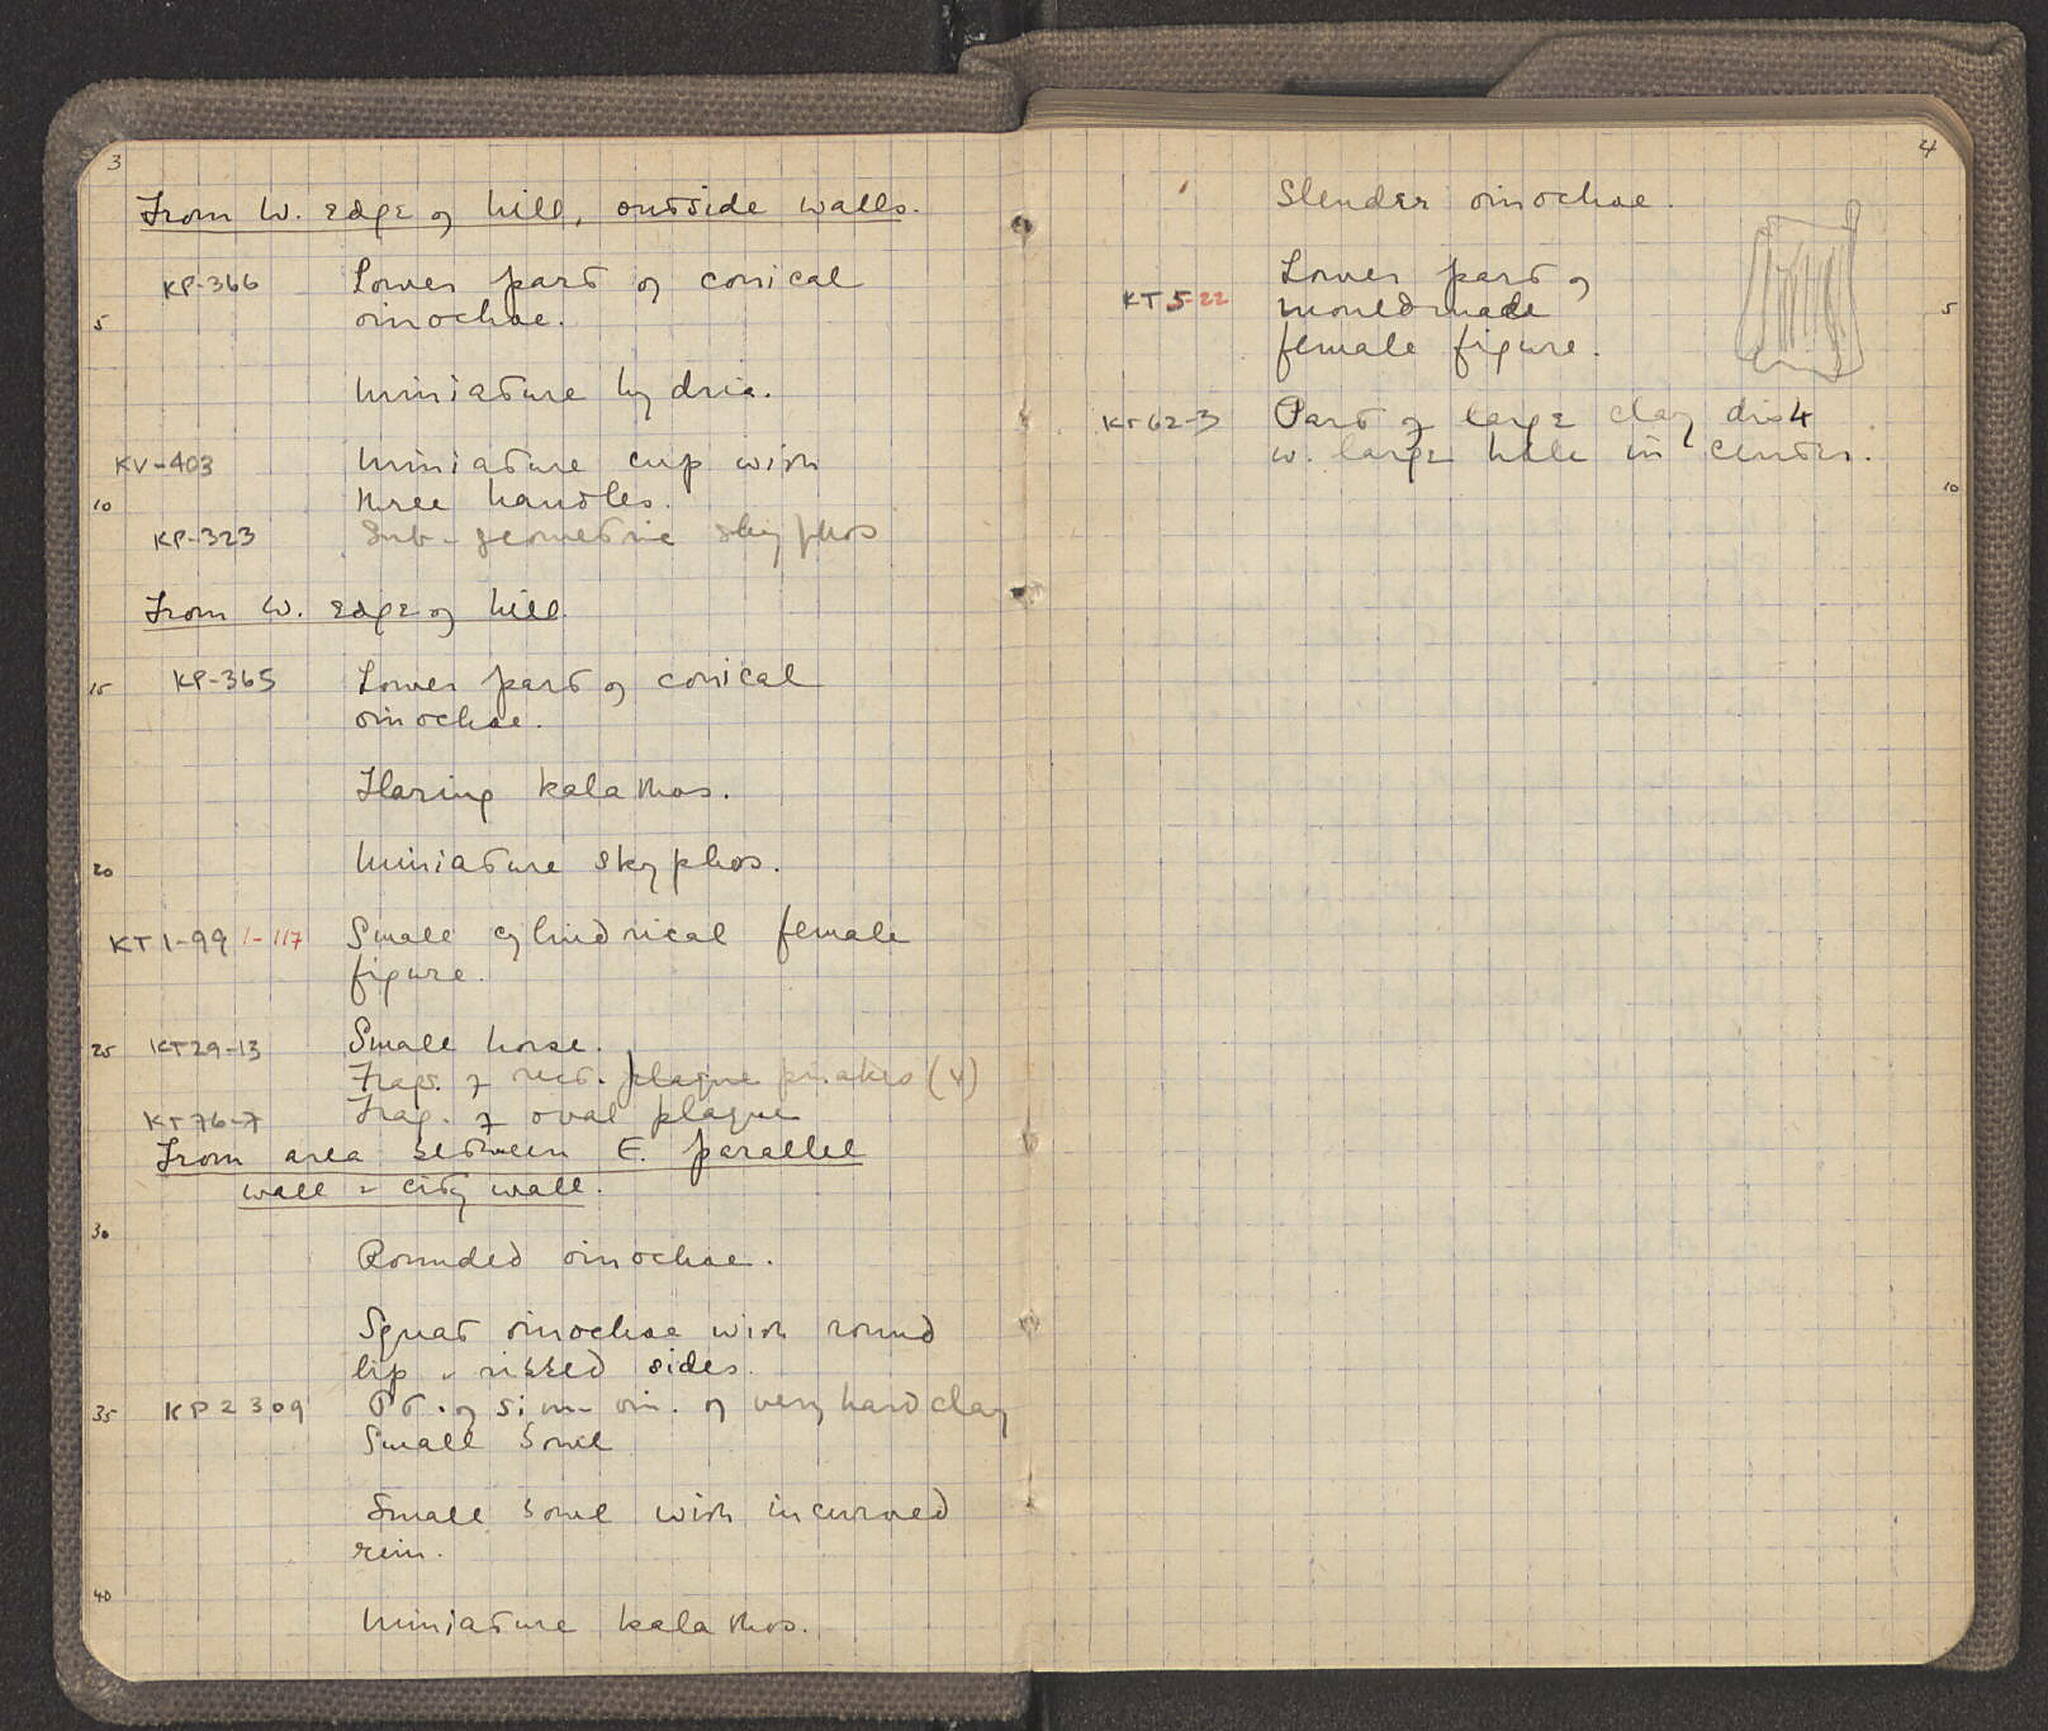 3
From W. edge of hill, outside walls.
KP-366 Lower part of conical
5 oinochoe.
Miniature hydria.
KV-403 Miniature cup with
10 three handles.
KP-323 Sub-geometric skyphos
From W. edge of hill
15 KP-365 Lower part of conical
oinochoe.
Flaring kalathos.
20 Miniature skyphos.
KT 1-99 1-117 Small cylindrical female
figure.
25 KT29-13 Small horse.
Frags. of rect. plaque pinakes (4)
KT76-7 Frag. of oval plaque
From area between E. parallel
wall & city wall.
30
Rounded oinochoe.
Squat oinochoe with round
lip & ribbed sides.
35 KP2309 Pt. of sim. oin. of very hard clay
Small bowl
Small bowl with incurved
rim.
40
Miniature kalathos.
4
Slender oinochoe.
Lower part of
KT 5-22 mouldmade 5
female figure.
KT62-3 Part of large clay disk
w. large hole in center.
10